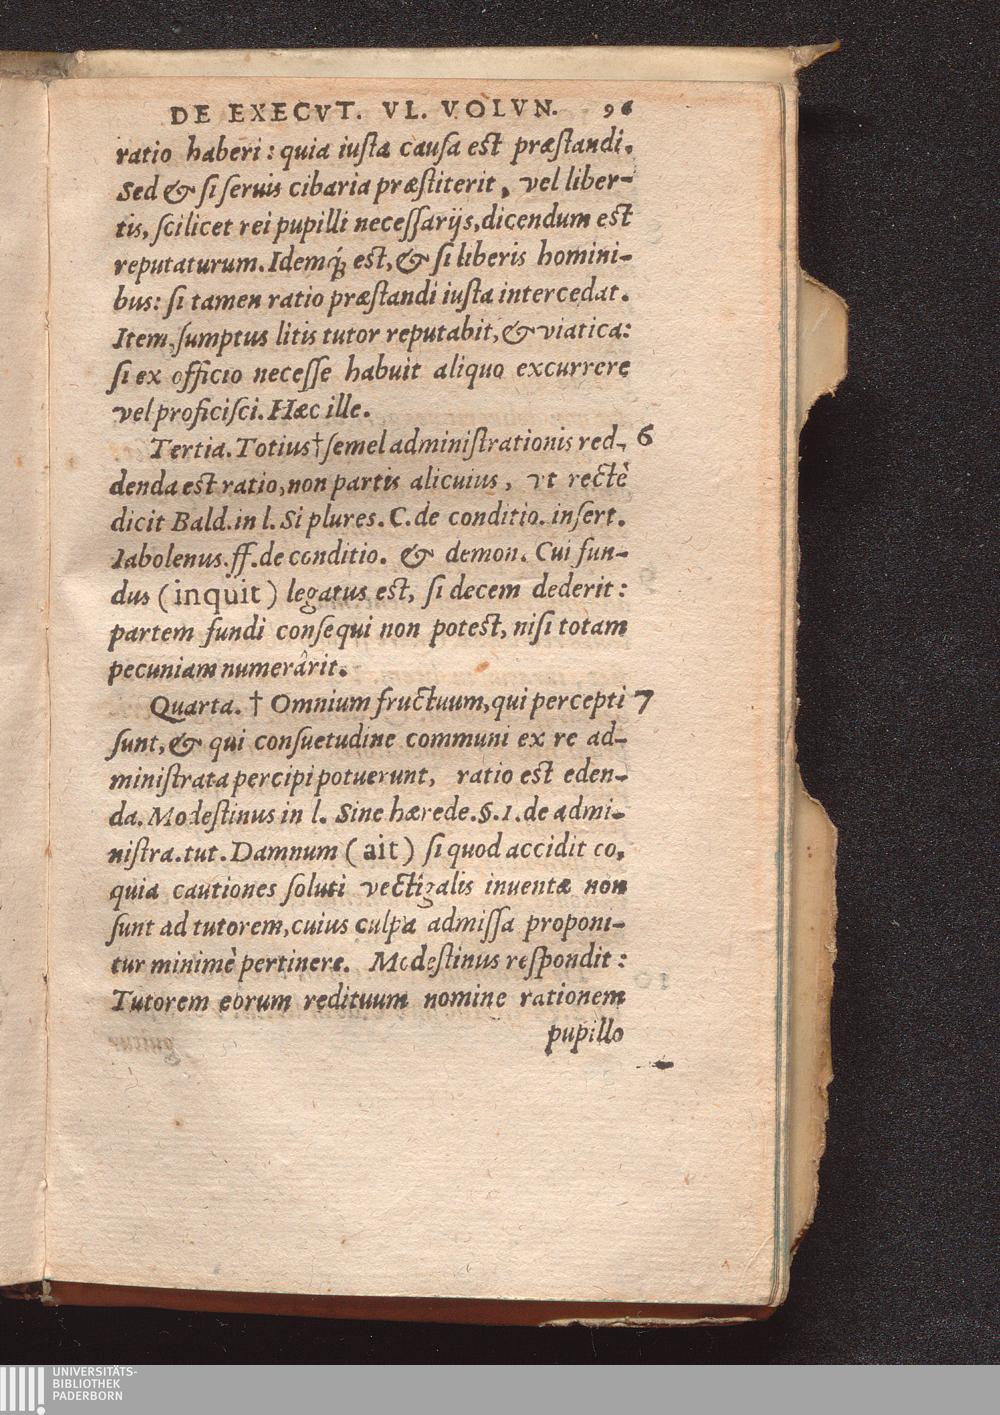 DE EXECVT. VL. VOLVN. 96
ratio haberi: quia iusta causa est præstandi.
Sed & si seruis cibaria præstiterit, vel liber-
tis, scilicet rei pupilli necessarijs, dicendum est
reputaturum. Idemq́; est, & si liberis homini-
bus: si tamen ratio præstandi iusta intercedat.
Item, sumptus litis tutor reputabit, & viatica:
si ex officio necesse habuit aliquo excurrere
vel proficisci. Hæc ille.
Tertia. Totius † semel administrationis red- 6
denda est ratio, non partis alicuius, vt rectè
dicit Bald. in l. Si plures. C. de conditio. insert.
Iabolenus. ff. de conditio. & demon. Cui fun-
dus (inquit) legatus est, si decem dederit:
partem fundi consequi non potest, nisi totam
pecuniam numerârit.
Quarta. † Omnium fructuum, qui percepti 7
sunt, & qui consuetudine communi ex re ad-
ministrata percipi potuerunt, ratio est eden-
da. Modestinus in l. Sine hærede. §. 1. de admi-
nistra. tut. Damnum (ait) si quod accidit eo,
quia cautiones soluti vectigalis inuentæ non
sunt ad tutorem, cuius culpa admissa proponi-
tur minimè pertinere. Modestinus respondit:
Tutorem eorum redituum nomine rationem
pupillo
UNIVERSITÄTS-
BIBLIOTHEK
PADERBORN